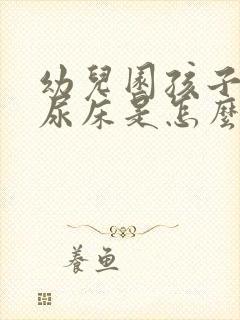 幼兒園孩子
尿床是怎麼
養魚